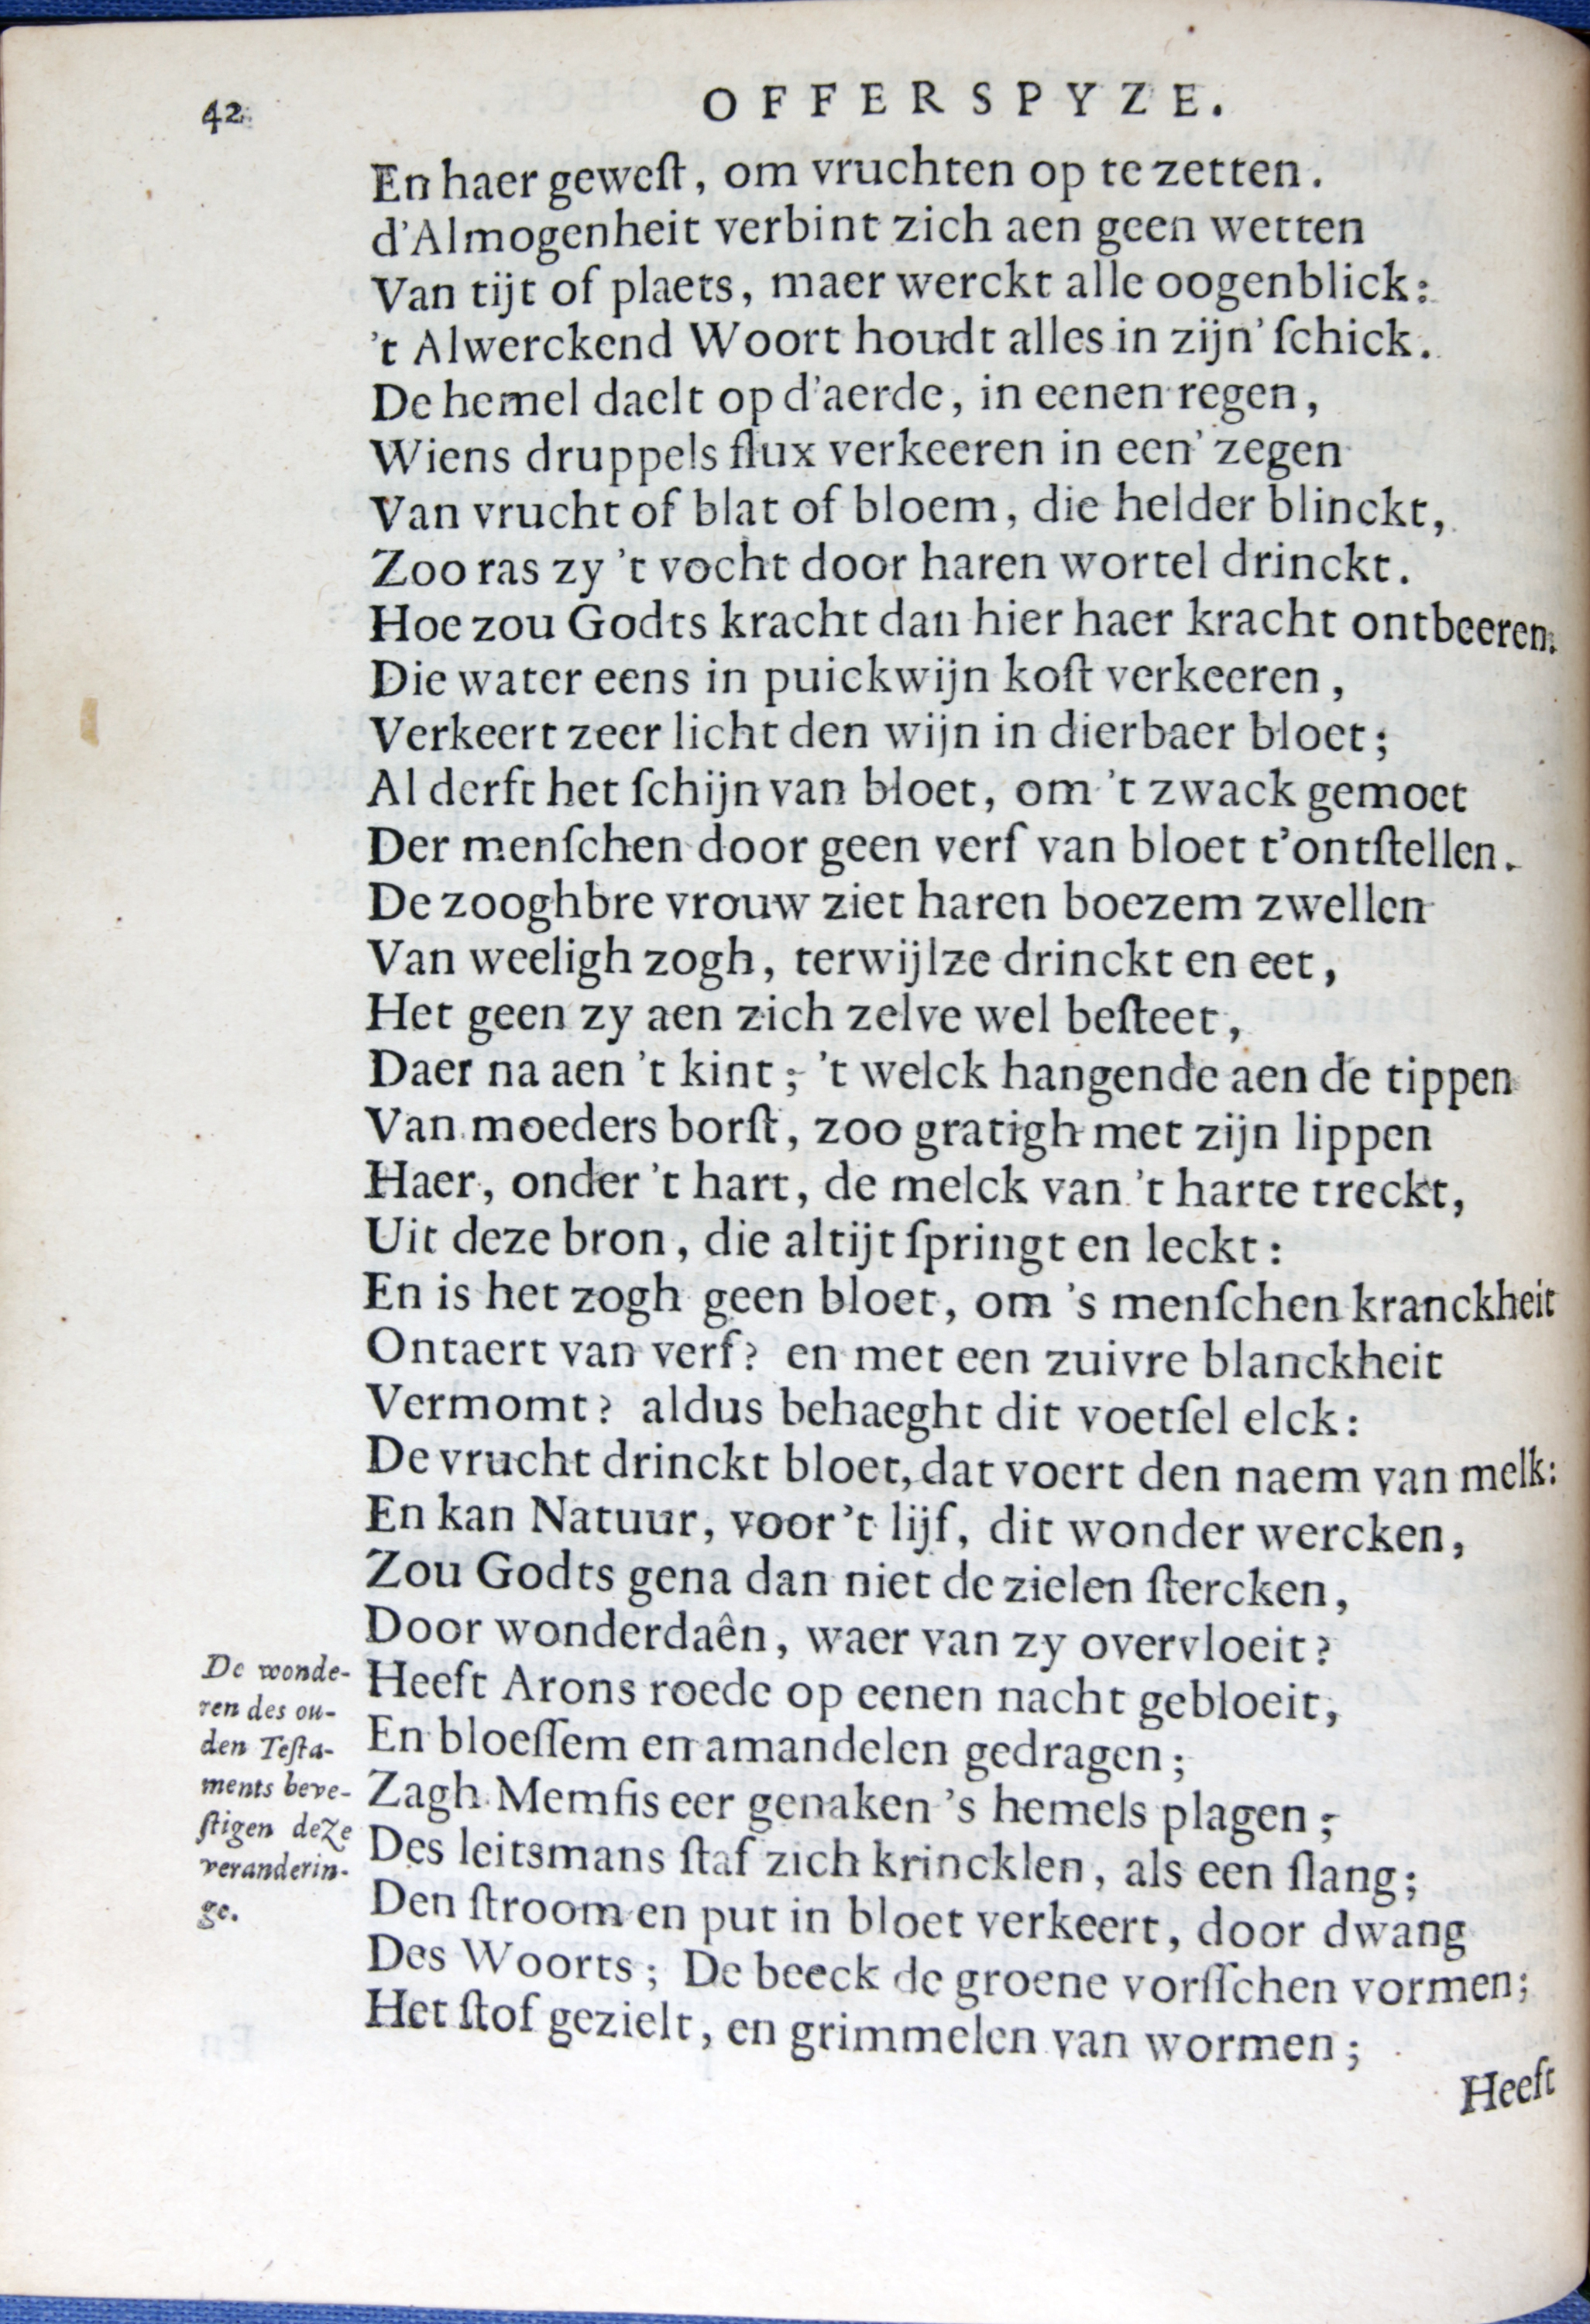 42
OFFERSPYZE.
En haer geweſt, om vruchten op te zetten.
d'Almogenheit verbint zich aen geen wetten
Van tijt of plaets, maer werckt alle oogenblick:
't Alwerckend Woort houdt alles in zijn' ſchick.
De hemel daelt op d'aerde, in eenen regen,
Wiens druppels flux verkeeren in een' zegen
Van vrucht of blat of bloem, die helder blinckt,
Zoo ras zy 't vocht door haren wortel drinckt.
Hoe zou Godts kracht dan hier haer kracht ontbeeren.
Die water eens in puickwijn koſt verkeeren,
Verkeert zeer licht den wijn in dierbaer bloet;
Al derft het ſchijn van bloet, om 't zwack gemoet
Der menſchen door geen verf van bloet t'ontſtellen.
De zooghbre vrouw ziet haren boezem zwellen
Van weeligh zogh, terwijlze drinckt en eet,
Het geen zy aen zich zelve wel beſteet,
Daer na aen 't kint; 't welck hangende aen de tippen
Van moeders borſt, zoo gratigh met zijn lippen
Haer, onder 't hart, de melck van 't harte treckt,
Uit deze bron, die altijt ſpringt en leckt:
En is het zogh geen bloet, om 's menſchen kranckheit
Ontaert van verf? en met een zuivre blanckheit
Vermomt? aldus behaeght dit voetſel elck:
De vrucht drinckt bloet, dat voert den naem van melk:
En kan Natuur, voor 't lijf, dit wonder wercken,
Zou Godts gena dan niet de zielen ſtercken,
Door wonderdaên, waer van zy overvloeit?
De wonde-
ren des ou-
den Teſta-
ments beve-
ſtigen deze
veranderin-
ge.
Heeft Arons roede op eenen nacht gebloeit,
En bloeſſem en amandelen gedragen;
Zagh Memfis eer genaken 's hemels plagen;
Des leitsmans ſtaf zich krincklen, als een ſlang;
Den ſtroom en put in bloet verkeert, door dwang
Des Woorts; De beeck de groene vorſſchen vormen;
Het ſtof gezielt, en grimmelen van wormen;
Heeft